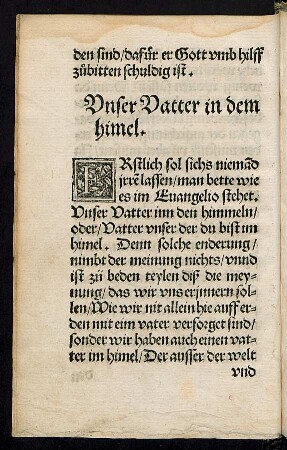 den sind/dafür er Gott vmb hilff
zůbitten schuldig ist.
Vnser Vatter in dem
himel.
ERstlich sol sichs niemād
jrrē lassen/man bette wie
es im Euangelio stehet.
Vnser Vatter inn den himmeln/
oder/Vatter vnser der du bist im
himel. Denn solche enderung/
nimbt der meinung nichts/vnnd
ist zů beden teylen diß die mey-
nung/das wir vns erjnnern söl-
len/Wie wir nit allein hie auff er-
den mit eim vater versorget sind/
sonder wir haben auch einen vat-
ter im himel/Der ausser der welt
vnd